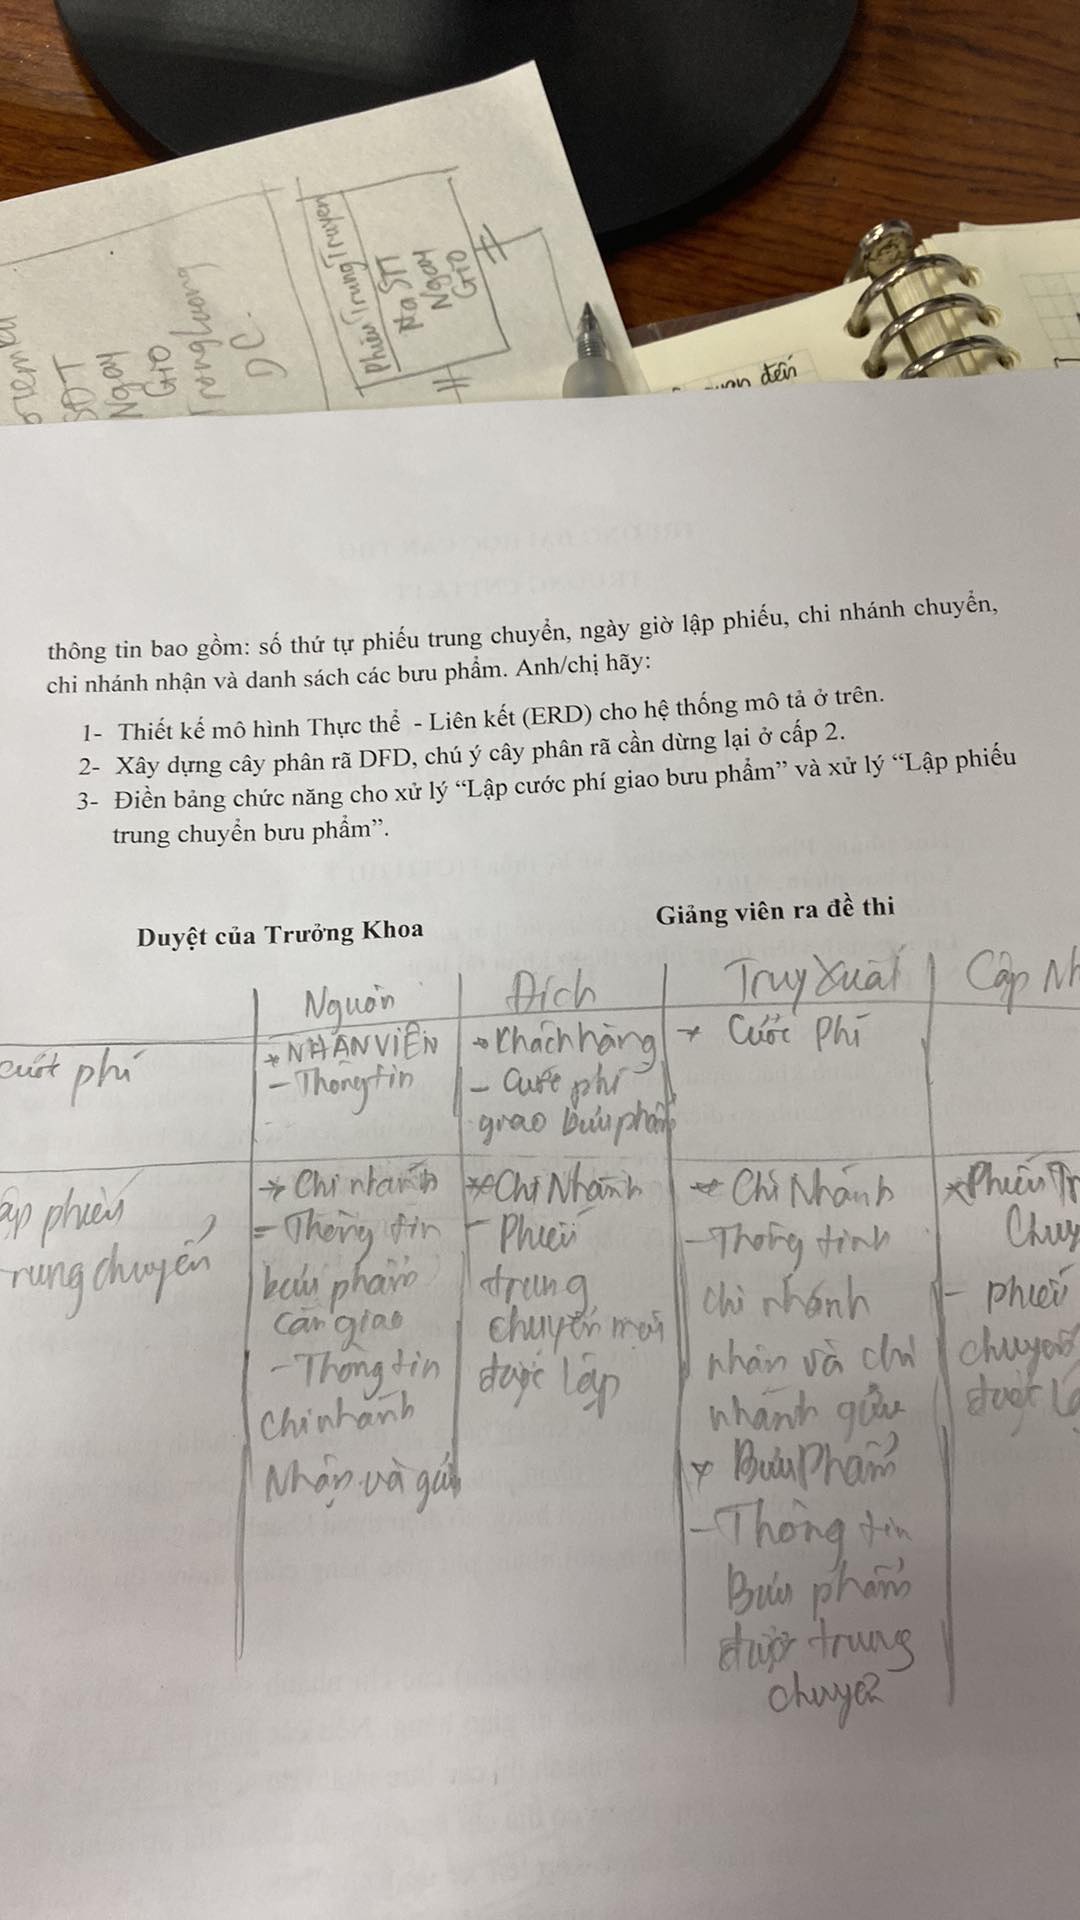 Phiếu Trung Truyen
Ma STT
Ngay
GIO
SĐT
Ngay
GIO
Trang Luong
DC.
đến
thông tin bao gồm: số thứ tự phiếu trung chuyển, ngày giờ lập phiếu, chi nhánh chuyển,
chi nhánh nhận và danh sách các bưu phẩm. Anh/chị hãy:
1- Thiết kế mô hình Thực thể - Liên kết (ERD) cho hệ thống mô tả ở trên.
2- Xây dựng cây phân rã DFD, chú ý cây phân rã cần dừng lại ở cấp 2.
3- Điền bảng chức năng cho xử lý “Lập cước phí giao bưu phẩm” và xử lý “Lập phiếu
trung chuyển bưu phẩm”.
Duyệt của Trưởng Khoa
Giảng viên ra đề thi
Nguồn
Đích
Truy Xuất
Cập Nh
cướt phí
* NHÂN VIÊN
- Thông tin
* Khách hàng
- Cướt phí
giao bưu phẩm
* Cước Phí
ập phiếu
rung chuyển
* Chi nhánh
- Thông tin
bưu phẩm
cần giao
- Thông tin
chi nhánh
Nhận và gửi
* Chi Nhánh
- Phiếu
trung
chuyển mới
được lập
* Chi Nhánh
- Thông tinh
chi nhánh
nhận và chi
nhánh gửi
* Bưu Phẩm
- Thông tin
Bưu phẩm
được trung
chuyển
* Phiếu Tr
Chuy
- phiếu
chuyển
được lậ